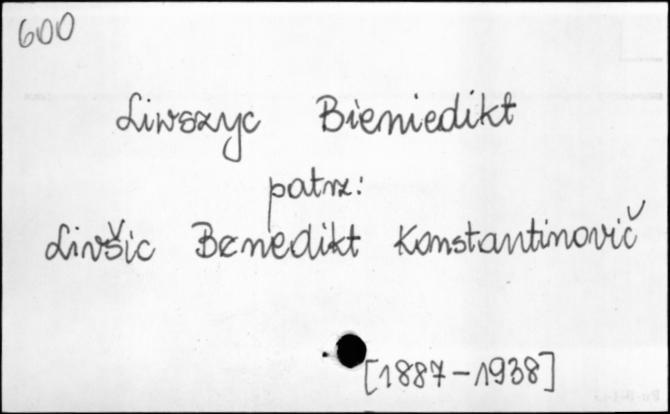 600
Liwszyc Bieniedikt
patrz:
Livšic Benedikt Konstantinovič
[1887-1938]